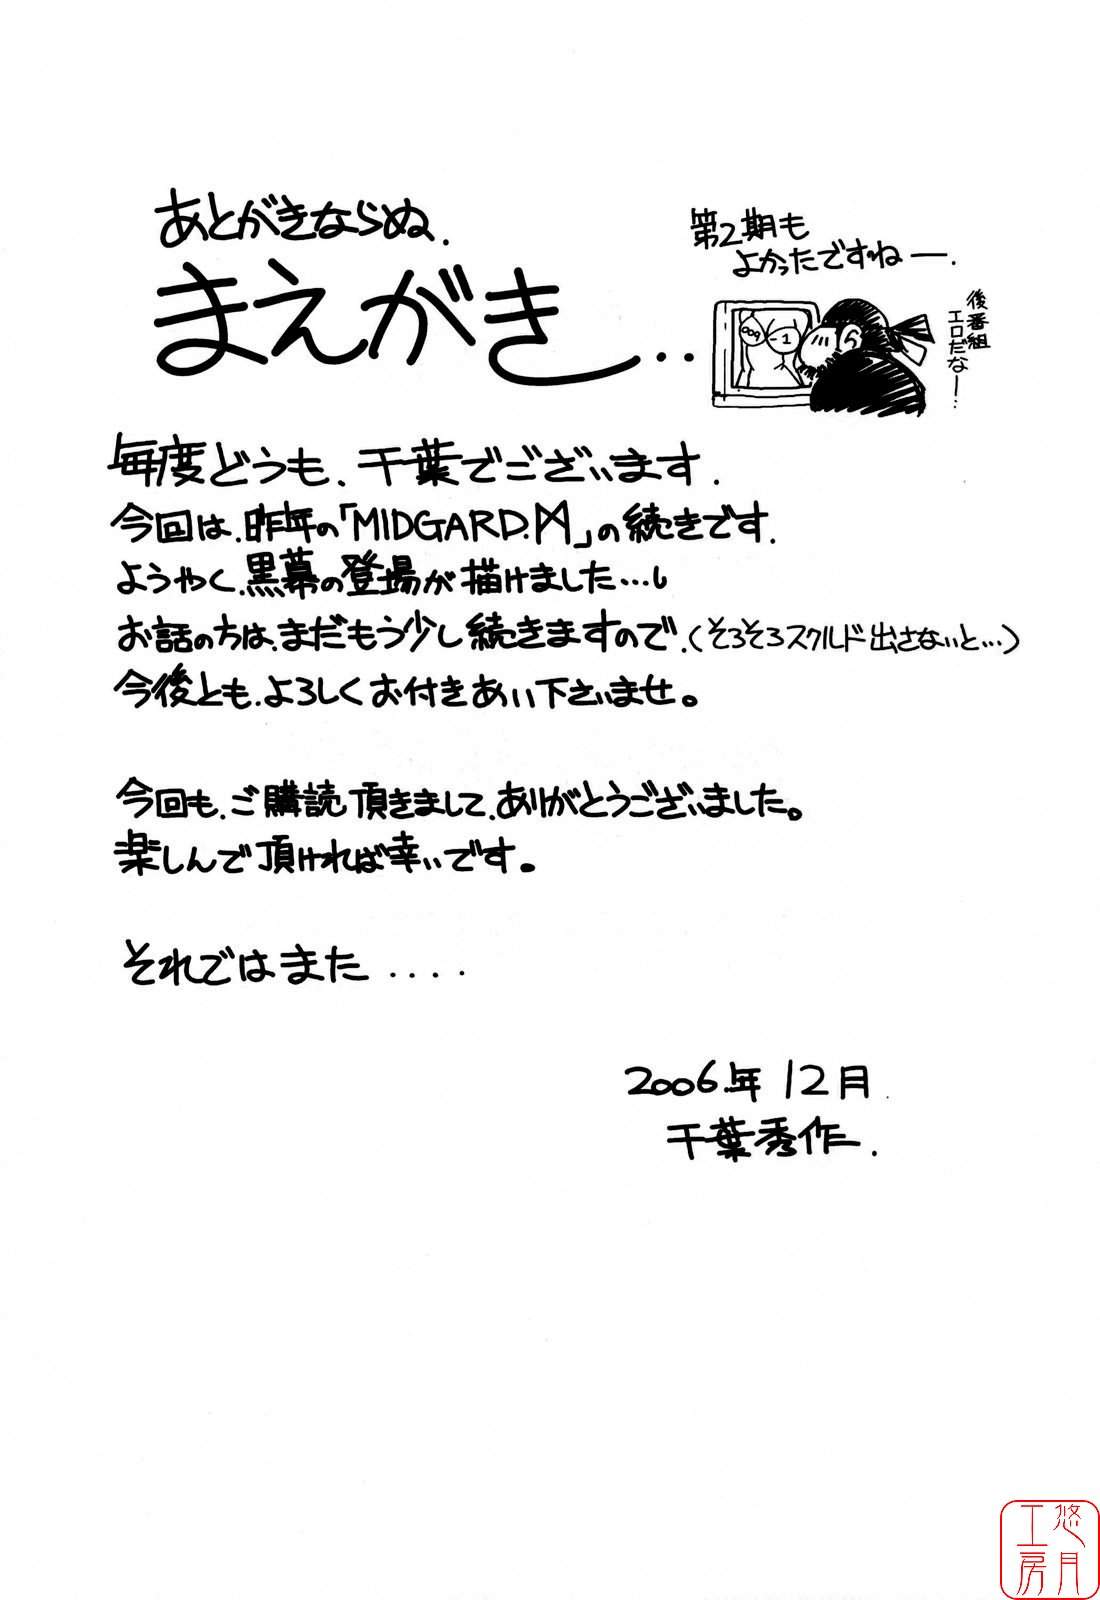 あとがきならぬ、
まえがき‥
第2期も
よかったですねー.
後番組
エロだな―‥
009
-1
毎度どうも、千葉でございます.
今回は、昨年の「MIDGARD.M」の続きです.
ようやく、黒幕の登場が描けました…し
お話の方は、まだもう少し続きますので、(そろそろスクルド出さないと…)
今後とも、よろしくお付きあい下さいませ。
今回も、ご購読頂きまして、ありがとうございました。
楽しんで頂ければ幸いです。
それではまた....
2006年12月
千葉秀作.
悠月
工房